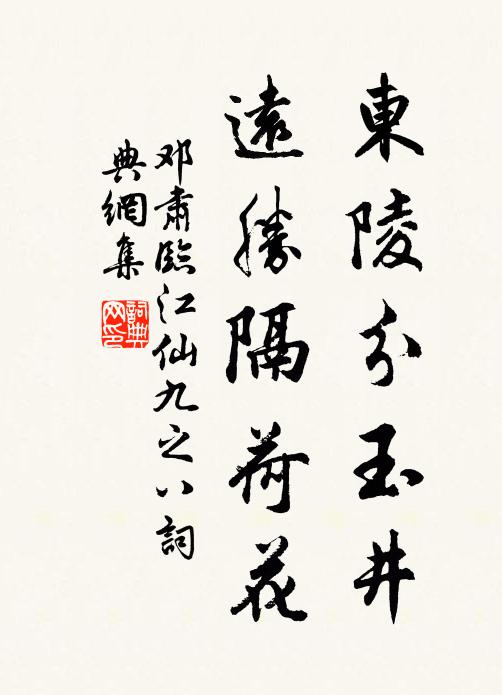 東陵分玉井
遠勝隔荷花
邓肅臨江仙九之八詞
典網集
詞典
网印